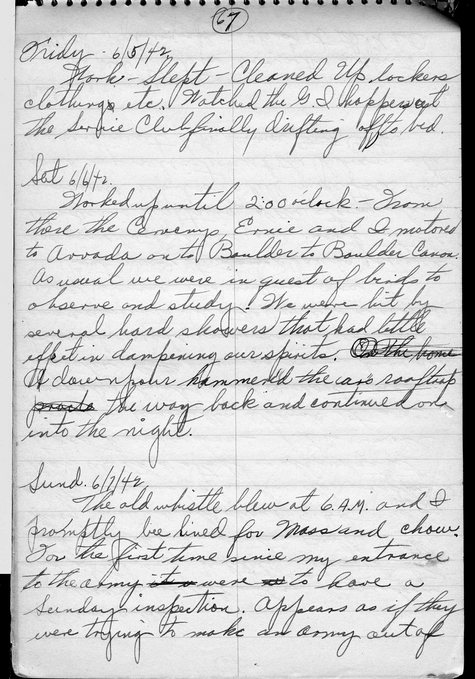 67
Fridy. 6/5/42,
Work - Slept - Cleaned Up lockers
clothing etc. Watched the G I hoppers at
the Servie Club finally drifting off to bed.
Sat 6/6/42.
Worked up until 2:00 o'clock - From
there the Cervenys, Ernie and I motored
to Arvada on to Boulder to Boulder Canon.
As usual we were in quest of birds to
observe and study. We were hit by
several hard showers that had little
effect in dampening our spirits. On the home
A downpour hammered the car's rooftop
the way back and continued on
into the night.
Sund. 6/7/42,
The old whistle blew at 6 A.M. and I
promptly bee lined for Mass and chow.
For the first time since my entrance
to the army were to have a
Sunday inspection. Appears as if they
were trying to make an army out of